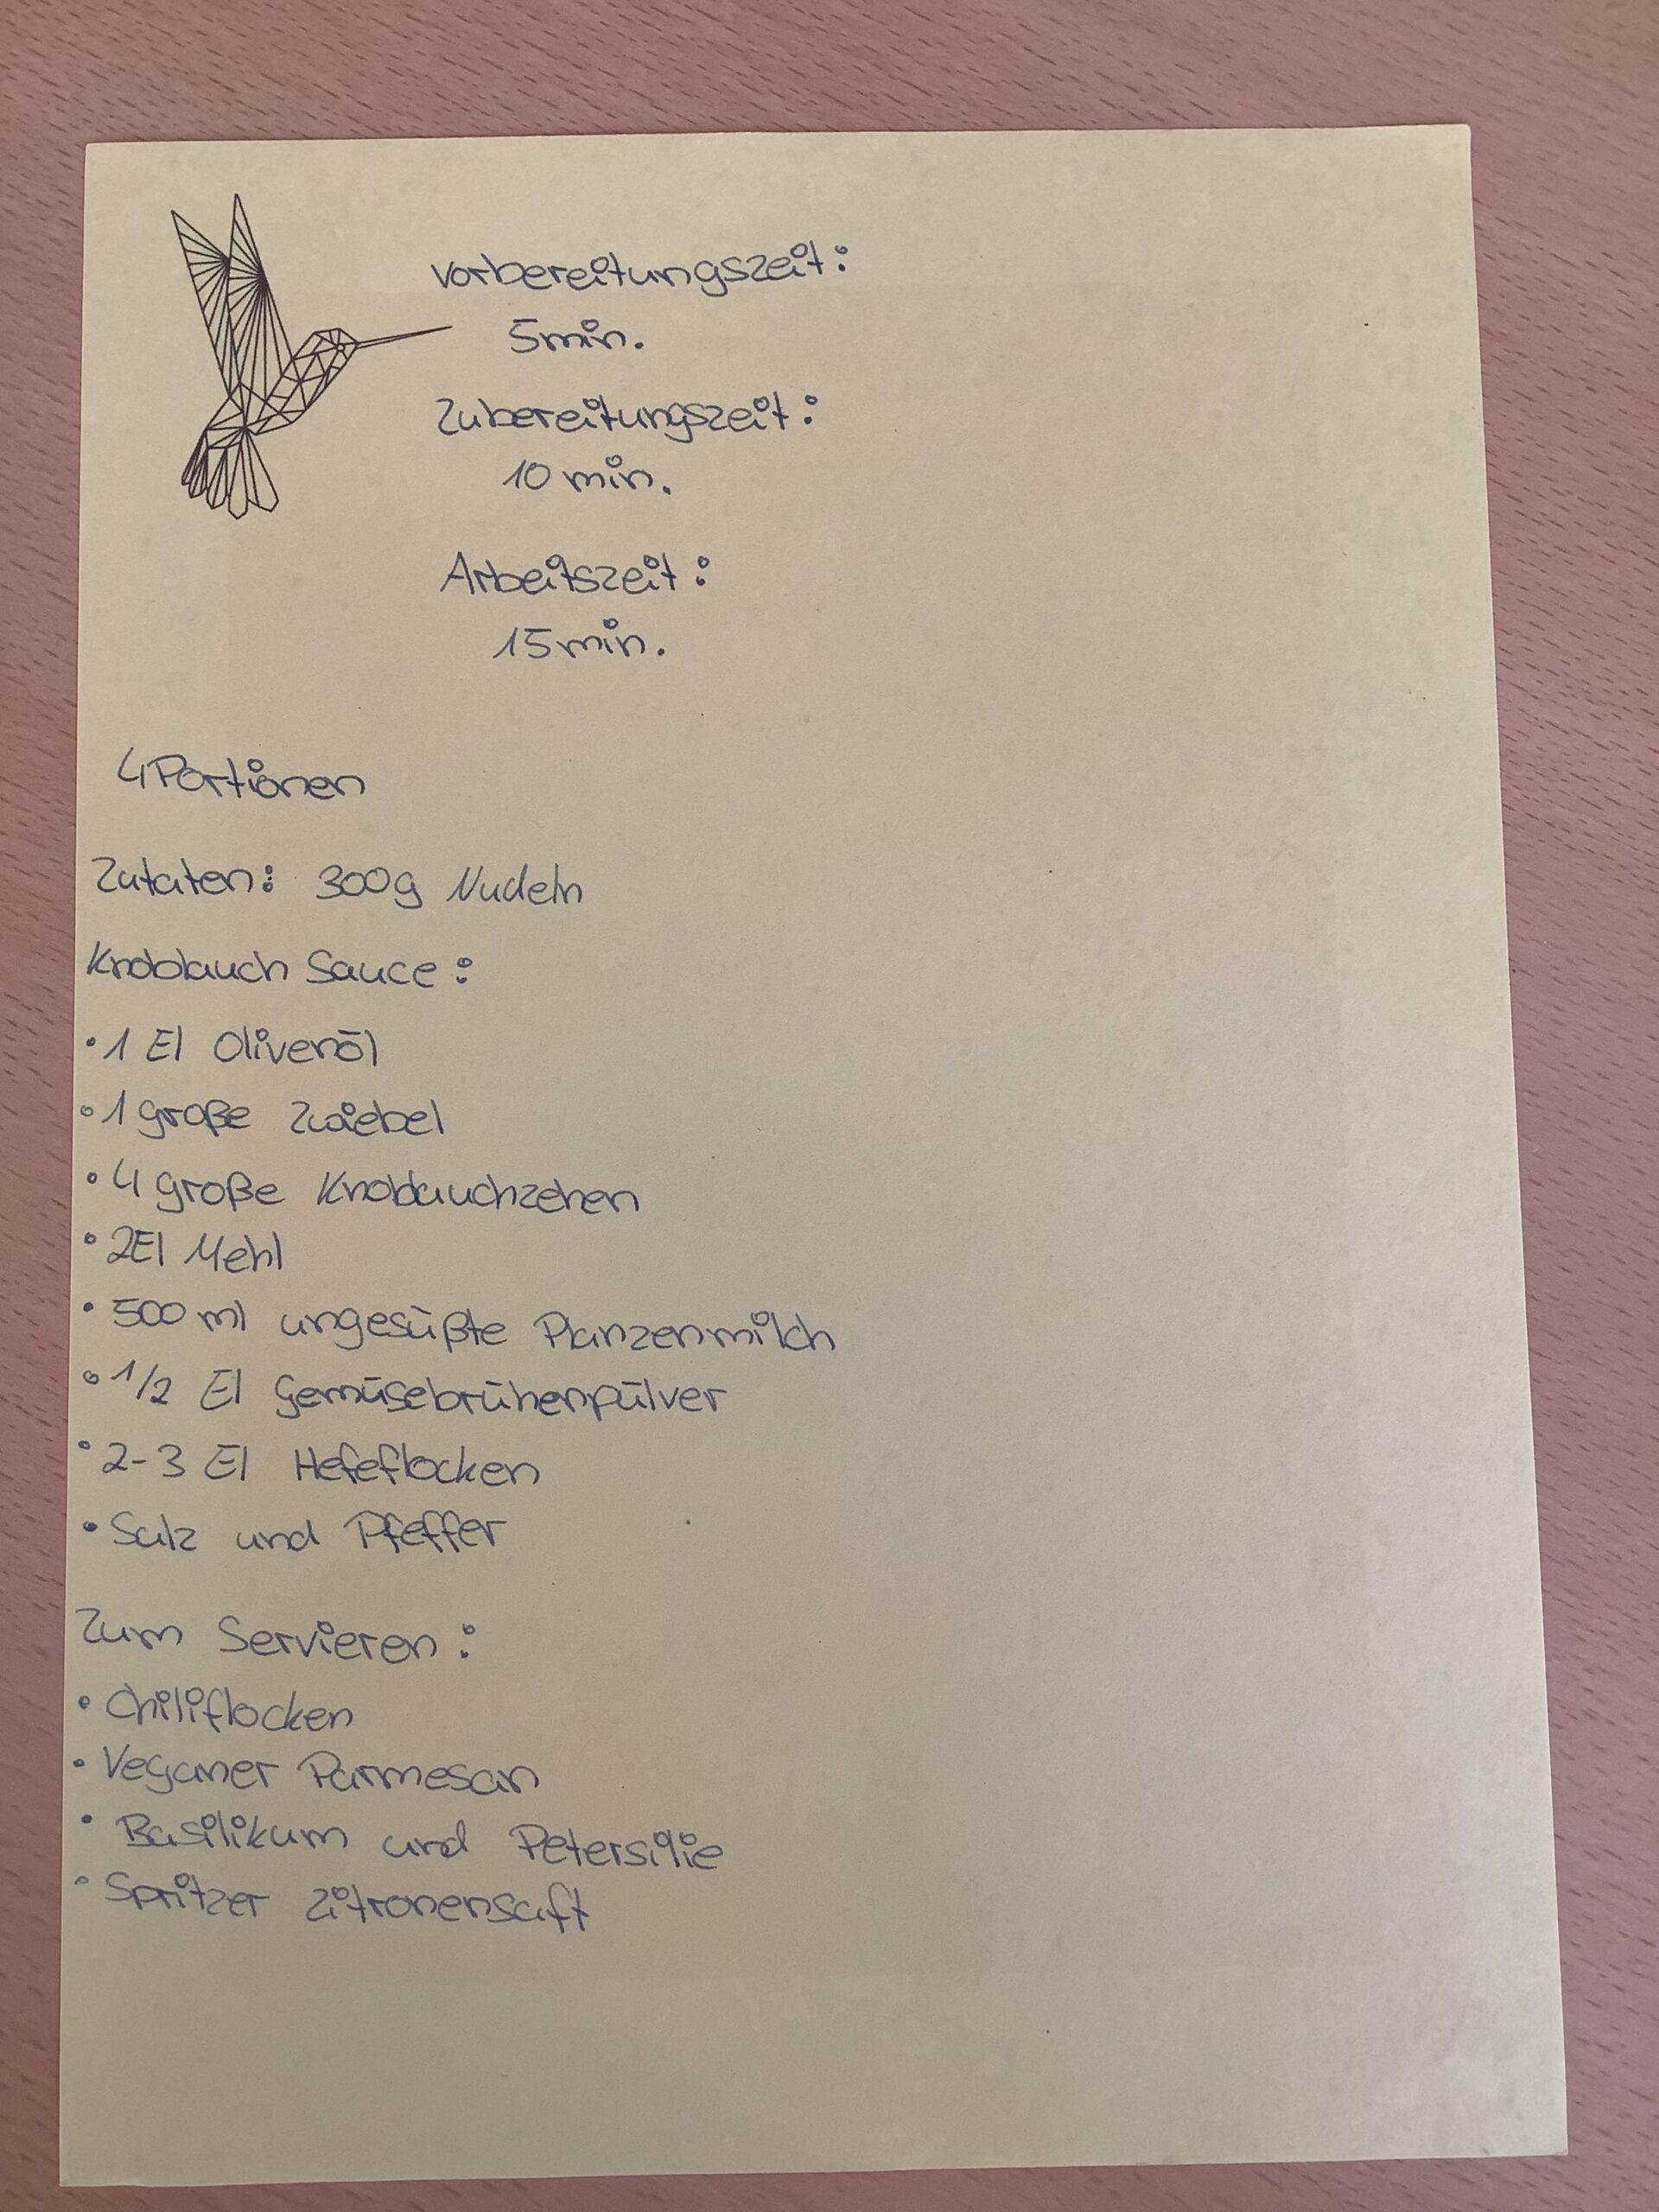 Vorbereitungszeit:
5min.
Zubereitungszeit:
10 min.
Arbeitszeit:
15min.
4 Portionen
Zutaten: 300g Nudeln
Knoblauch Sauce:
• 1 El Olivenöl
• 1 große Zwiebel
• 4 große Knoblauchzehen
• 2El Mehl
• 500 ml ungesüßte Planzenmilch
• 1/2 El Gemüsebrühenpülver
• 2-3 El Hefeflocken
• Salz und Pfeffer
Zum Servieren:
• Chiliflocken
• Veganer Parmesan
• Basilikum und Petersilie
• Spritzer Zitronensaft